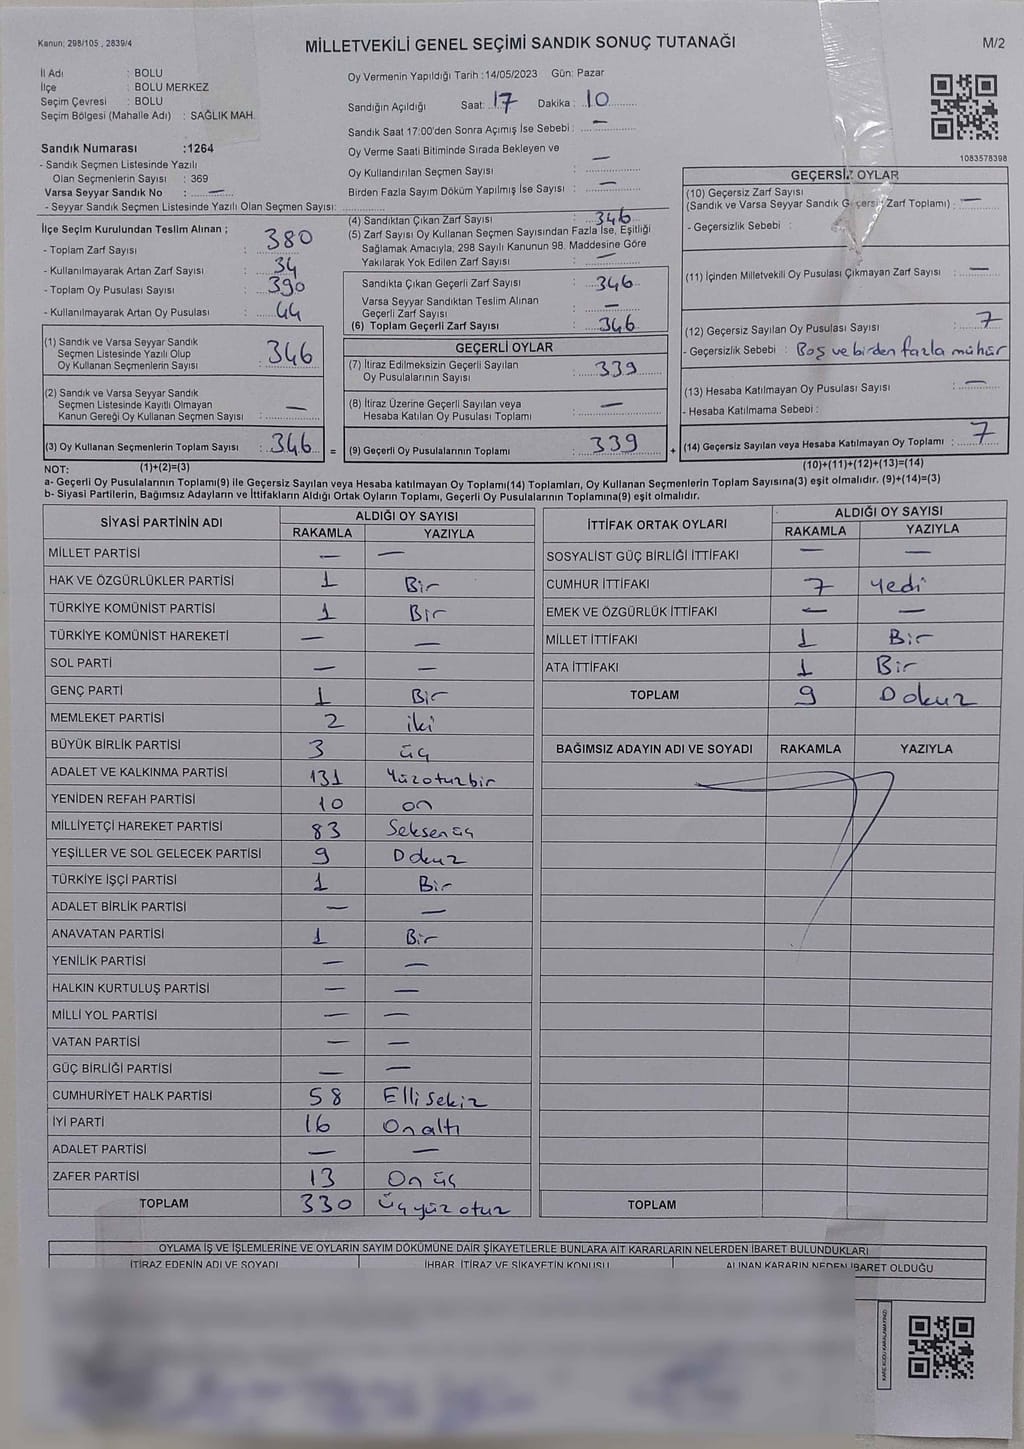 Kanun: 298/105 , 2839/4
MİLLETVEKİLİ GENEL SEÇİMİ SANDIK SONUÇ TUTANAĞI
M/2
İl Adı : BOLU
İlçe : BOLU MERKEZ
Seçim Çevresi : BOLU
Seçim Bölgesi (Mahalle Adı) : SAĞLIK MAH.
Oy Vermenin Yapıldığı Tarih :14/05/2023 Gün: Pazar
Sandığın Açıldığı Saat: 17 Dakika : 10
Sandık Saat 17:00'den Sonra Açımış İse Sebebi : —
Oy Verme Saati Bitiminde Sırada Bekleyen ve
Oy Kullandırılan Seçmen Sayısı —
Birden Fazla Sayım Döküm Yapılmış İse Sayısı : —
1083578398
Sandık Numarası :1264
- Sandık Seçmen Listesinde Yazılı
Olan Seçmenlerin Sayısı : 369
Varsa Seyyar Sandık No : —
- Seyyar Sandık Seçmen Listesinde Yazılı Olan Seçmen Sayısı:
İlçe Seçim Kurulundan Teslim Alınan ;
- Toplam Zarf Sayısı : 380
- Kullanılmayarak Artan Zarf Sayısı : 34
- Toplam Oy Pusulası Sayısı : 390
- Kullanılmayarak Artan Oy Pusulası : 44
(1) Sandık ve Varsa Seyyar Sandık
Seçmen Listesinde Yazılı Olup
Oy Kullanan Seçmenlerin Sayısı : 346
(2) Sandık ve Varsa Seyyar Sandık
Seçmen Listesinde Kayıtlı Olmayan
Kanun Gereği Oy Kullanan Seçmen Sayısı : —
(3) Oy Kullanan Seçmenlerin Toplam Sayısı : 346 =
(4) Sandıktan Çıkan Zarf Sayısı : 346
(5) Zarf Sayısı Oy Kullanan Seçmen Sayısından Fazla İse, Eşitliği
Sağlamak Amacıyla, 298 Sayılı Kanunun 98. Maddesine Göre
Yakılarak Yok Edilen Zarf Sayısı : —
Sandıkta Çıkan Geçerli Zarf Sayısı : 346
Varsa Seyyar Sandıktan Teslim Alınan
Geçerli Zarf Sayısı : —
(6) Toplam Geçerli Zarf Sayısı : 346
GEÇERLİ OYLAR
(7) İtiraz Edilmeksizin Geçerli Sayılan
Oy Pusulalarının Sayısı : 339
(8) İtiraz Üzerine Geçerli Sayılan veya
Hesaba Katılan Oy Pusulası Toplamı : —
(9) Geçerli Oy Pusulalarının Toplamı : 339 +
GEÇERSİZ OYLAR
(10) Geçersiz Zarf Sayısı
(Sandık ve Varsa Seyyar Sandık Geçersiz Zarf Toplamı) : —
- Geçersizlik Sebebi :
(11) İçinden Milletvekili Oy Pusulası Çıkmayan Zarf Sayısı : —
(12) Geçersiz Sayılan Oy Pusulası Sayısı : 7
- Geçersizlik Sebebi : Boş ve birden fazla mühür
(13) Hesaba Katılmayan Oy Pusulası Sayısı : —
- Hesaba Katılmama Sebebi :
(14) Geçersiz Sayılan veya Hesaba Katılmayan Oy Toplamı : 7
NOT: (1)+(2)=(3) (10)+(11)+(12)+(13)=(14)
a- Geçerli Oy Pusulalarının Toplamı(9) ile Geçersiz Sayılan veya Hesaba katılmayan Oy Toplamı(14) Toplamları, Oy Kullanan Seçmenlerin Toplam Sayısına(3) eşit olmalıdır. (9)+(14)=(3)
b- Siyasi Partilerin, Bağımsız Adayların ve İttifakların Aldığı Ortak Oyların Toplamı, Geçerli Oy Pusulalarının Toplamına(9) eşit olmalıdır.
SİYASİ PARTİNİN ADI ALDIĞI OY SAYISI
RAKAMLA YAZIYLA
MİLLET PARTİSİ — —
HAK VE ÖZGÜRLÜKLER PARTİSİ 1 Bir
TÜRKİYE KOMÜNİST PARTİSİ 1 Bir
TÜRKİYE KOMÜNİST HAREKETİ — —
SOL PARTİ — —
GENÇ PARTİ 1 Bir
MEMLEKET PARTİSİ 2 iki
BÜYÜK BİRLİK PARTİSİ 3 üç
ADALET VE KALKINMA PARTİSİ 131 Yüzotuzbir
YENİDEN REFAH PARTİSİ 10 on
MİLLİYETÇİ HAREKET PARTİSİ 83 Seksen üç
YEŞİLLER VE SOL GELECEK PARTİSİ 9 Dokuz
TÜRKİYE İŞÇİ PARTİSİ 1 Bir
ADALET BİRLİK PARTİSİ — —
ANAVATAN PARTİSİ 1 Bir
YENİLİK PARTİSİ — —
HALKIN KURTULUŞ PARTİSİ — —
MİLLİ YOL PARTİSİ — —
VATAN PARTİSİ — —
GÜÇ BİRLİĞİ PARTİSİ — —
CUMHURİYET HALK PARTİSİ 58 Elli sekiz
İYİ PARTİ 16 On altı
ADALET PARTİSİ — —
ZAFER PARTİSİ 13 On üç
TOPLAM 330 üçyüz otuz
İTTİFAK ORTAK OYLARI ALDIĞI OY SAYISI
RAKAMLA YAZIYLA
SOSYALİST GÜÇ BİRLİĞİ İTTİFAKI — —
CUMHUR İTTİFAKI 7 Yedi
EMEK VE ÖZGÜRLÜK İTTİFAKI — —
MİLLET İTTİFAKI 1 Bir
ATA İTTİFAKI 1 Bir
TOPLAM 9 Dokuz
BAĞIMSIZ ADAYIN ADI VE SOYADI RAKAMLA YAZIYLA
TOPLAM
OYLAMA İŞ VE İŞLEMLERİNE VE OYLARIN SAYIM DÖKÜMÜNE DAİR ŞİKAYETLERLE BUNLARA AİT KARARLARIN NELERDEN İBARET BULUNDUKLARI
İTİRAZ EDENİN ADI VE SOYADI İHBAR, İTİRAZ VE ŞİKAYETİN KONUSU ALINAN KARARIN NEDEN İBARET OLDUĞU